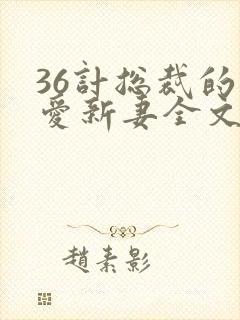 36計総裁的
愛新妻全文
趙素影